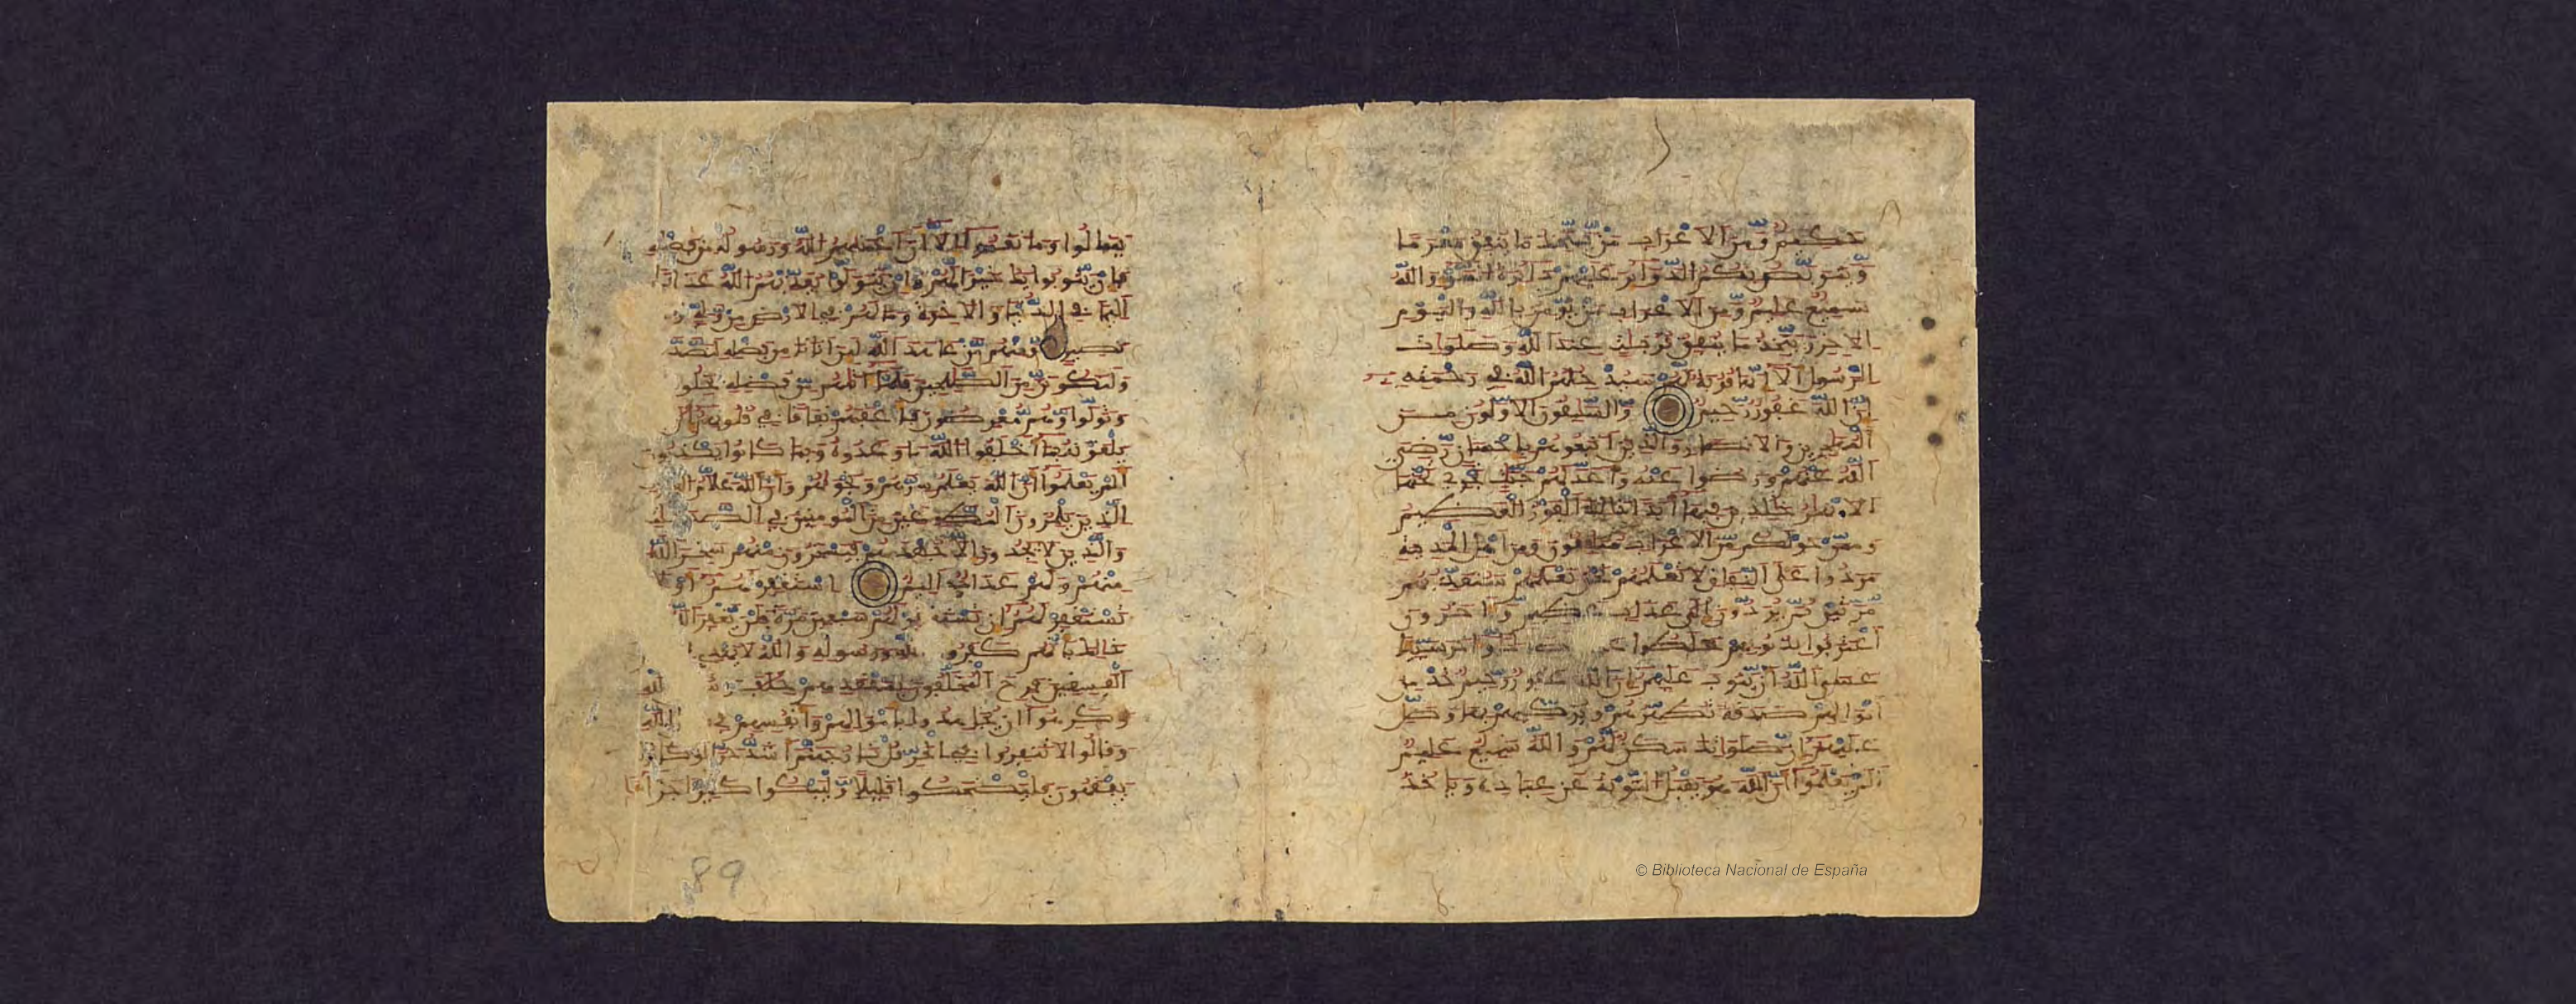 حكيم ومن الاعراب من يتخذ ما ينفق مغرما
ويتربص بكم الدواير عليهم دايرة السوء والله
سميع عليم ومن الاعراب من يومن بالله واليوم
الاخر ويتخذ ما ينفق قربت عند الله وصلوات
الرسول الا انها قربة لهم سيدخلهم الله في رحمته
ان الله غفور رحيم والسبقون الاولون من
المهجرين والانصار والذين اتبعوهم باحسن رضي
الله عنهم ورضوا عنه واعد لهم جنت تجري تحتها
الانهر خلدين فيها ابدا ذلك الفوز العظيم
وممن حولكم من الاعراب منفقون ومن اهل المدينة
مردوا على النفاق لا تعلمهم نحن نعلمهم سنعذبهم
مرتين ثم يردون الى عذاب عظيم واخرون
اعترفوا بذنوبهم خلطوا واخر سييا
عسى الله ان يتوب عليهم ان الله غفور رحيم خذ من
امولهم صدقة تطهرهم وتزكيهم بها وصل
عليهم ان صلواتك سكن لهم والله سميع عليم
الم يعلموا ان الله هو يقبل التوبة عن عباده وياخذ
ينالوا وما نقموا الا ان اغنيهم الله ورسوله من فضله
فان يتوبوا يك خيرا لهم وان يتولوا يعذبهم الله عذابا
اليما في الدنيا والاخرة وما لهم في الارض من ولي
نصير ومنهم من عاهد الله لين اتانا من فضله لنصد
ولنكونن من الصلحين فلما اتيهم من فضله بخلوا
وتولوا وهم معرضون فاعقبهم نفاقا في قلوبهم الى
يلقونه بما اخلفوا الله ما وعدوه وبما كانوا يكذبون
الم يعلموا ان الله يعلم سرهم ونجويهم وان الله علام الغيوب
الذين يلمزون المطوعين من المومنين في الصدقت
والذين لا يجدون الا جهدهم فيسخرون منهم سخر الله
منهم ولهم عذاب اليم استغفر لهم او لا
تستغفر لهم ان تستغفر لهم سبعين مرة فلن يغفر الله
ذلك بانهم كفروا ورسوله والله لا يهدي
الفسقين فرح المخلفون بمقعدهم خلف الله
وكرهوا ان يجهدوا بامولهم وانفسهم في الله
وقالوا لا تنفروا في الحر قل نار جهنم اشد حرا لو كانوا
يفقهون فليضحكوا قليلا وليبكوا كثيرا جزاء
89
© Biblioteca Nacional de España